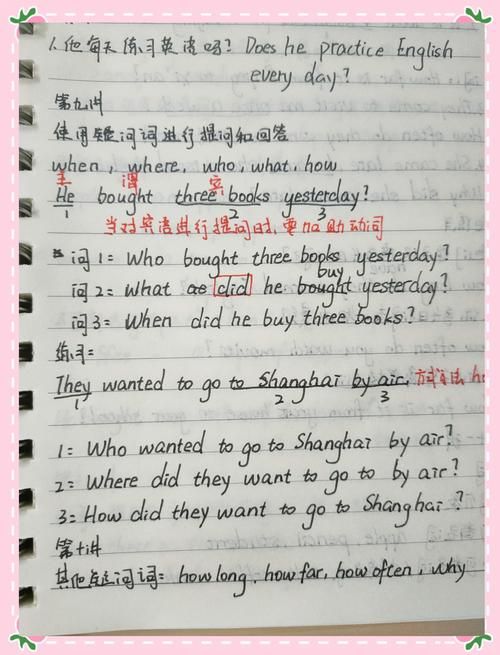 人他每天练习英语吗? Does he practice English
every day?
第九讲
使用疑问词进行提问和回答
when, where, who, what, how
主 谓 宾
He bought three books yesterday?
1 2 3
当对宾语进行提问时,要加助动词
问1: Who bought three books yesterday?
buy
问2: What did he bought yesterday?
问3: When did he buy three books?
练习:
They wanted to go to Shanghai by air.
1 2 3
1: Who wanted to go to Shanghai by air?
2: Where did they want to go to by air?
3: How did they want to go to Shanghai?
第十讲
其他疑问词: how long, how far, how often, why